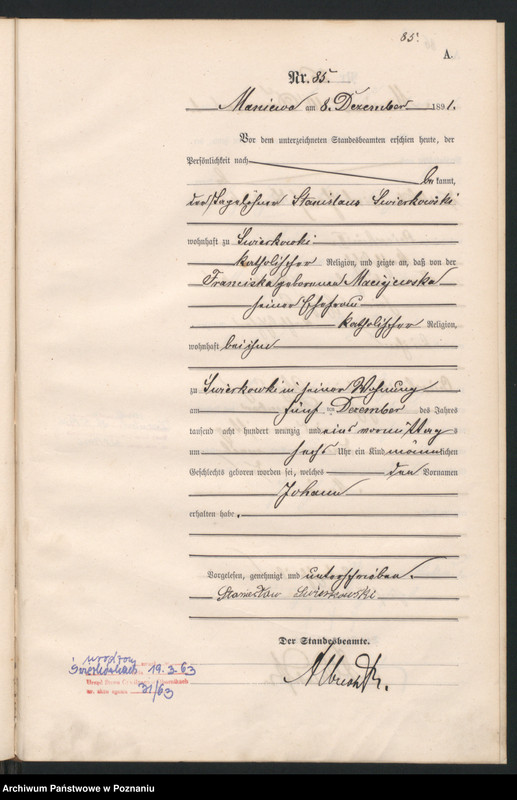 85.
A.
Nr. 85.
Maniewo am 8. Dezember 1891.
Vor dem unterzeichneten Standesbeamten erschien heute, der
Persönlichkeit nach
bekannt,
der Tagelöhner Stanislaus Swierkowski
wohnhaft zu Swierkowki
katholischer Religion, und zeigte an, daß von der
Franciska geborenen Maciejewska
seiner Ehefrau
katholischer Religion,
wohnhaft bei ihm
zu Swierkowki in seiner Wohnung
am fünften Dezember des Jahres
tausend acht hundert neunzig und eins vormittags
um sechs Uhr ein Kind männlichen
Geschlechts geboren worden sei, welches den Vornamen
Johann
erhalten habe.
Vorgelesen, genehmigt und unterschrieben.
Stanisław Swierkowski
Der Standesbeamte.
Albrecht.
19.3.63
Urząd Stanu Cywilnego
31/63
Archiwum Państwowe w Poznaniu